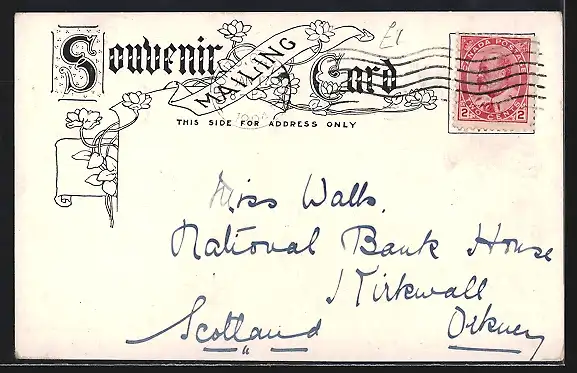 Souvenir MAILING Card
£1
THIS SIDE FOR ADDRESS ONLY
CANADA POSTAGE
2 TWO CENTS 2
Miss Walls,
National Bank House
Kirkwall
Orkney
Scotland